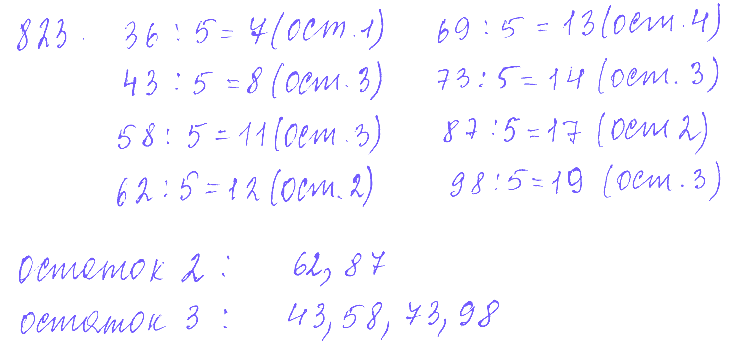 823. 36 : 5 = 7 (ост. 1) 69 : 5 = 13 (ост. 4)
43 : 5 = 8 (ост. 3) 73 : 5 = 14 (ост. 3)
58 : 5 = 11 (ост. 3) 87 : 5 = 17 (ост 2)
62 : 5 = 12 (ост. 2) 98 : 5 = 19 (ост. 3)
остаток 2 : 62, 87
остаток 3 : 43, 58, 73, 98